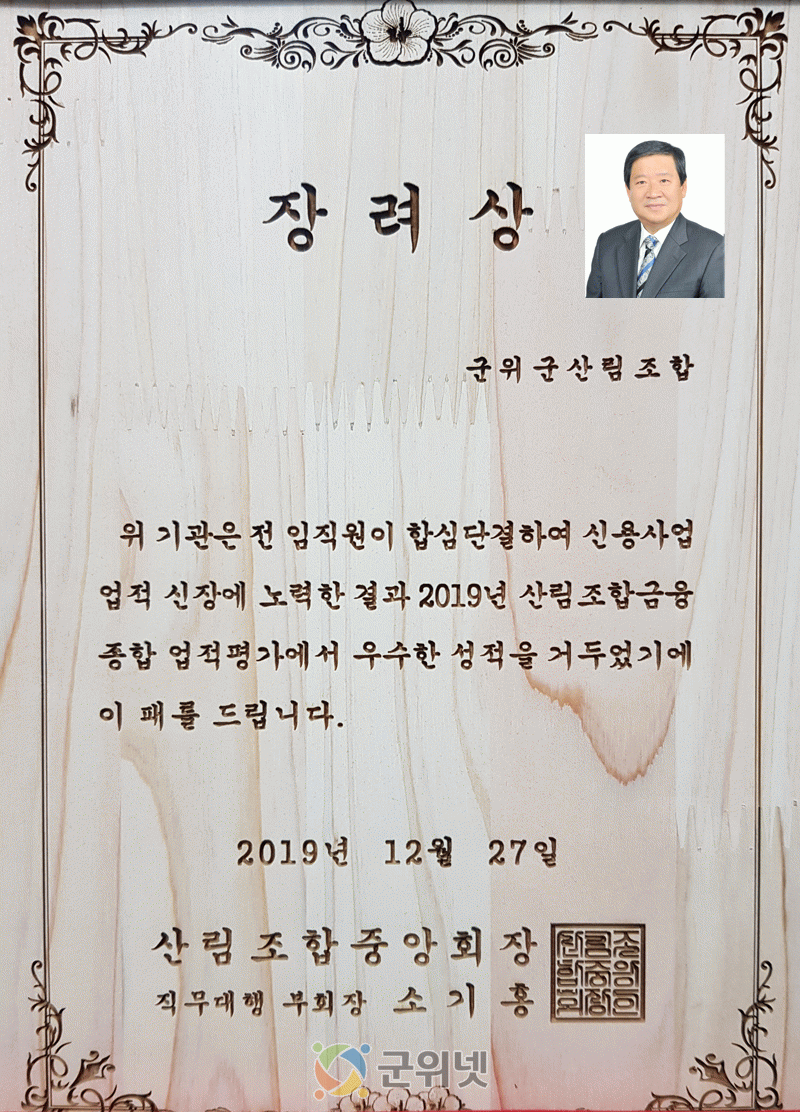 장려상
군위군산림조합
위 기관은 전 임직원이 합심단결하여 신용사업
업적 신장에 노력한 결과 2019년 산림조합금융
종합 업적평가에서 우수한 성적을 거두었기에
이 패를 드립니다.
2019년 12월 27일
산림조합중앙회장
직무대행 부회장 소기홍
군위넷